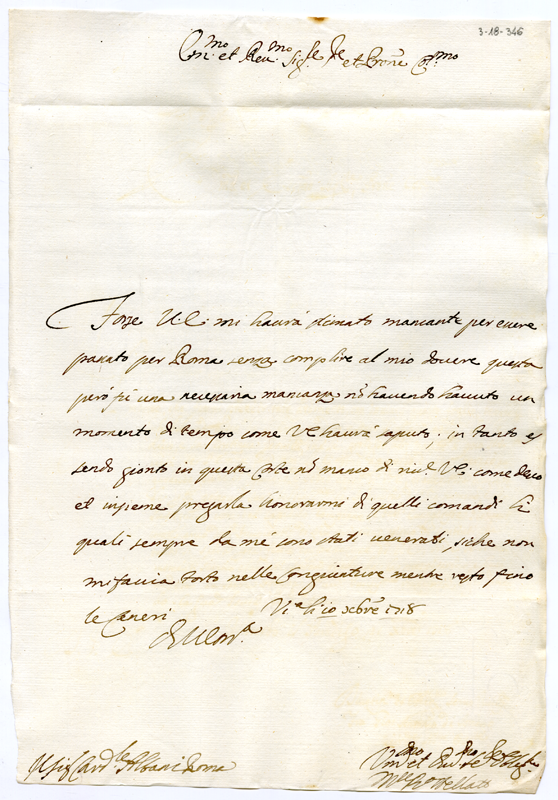 3-18-346
Em.mo et Reu.mo Sig.re et Prone
Forse V.E. mi haurà stimato mancante per essere
passato per Roma senza complire al mio douere questa
però fù una necessaria mancanza nõ hauendo hauuto un
momento di tempo come VE haurà saputo, in tanto es
sendo gionto in questa Corte nõ manco di VE come deuo
et insieme pregarla honorarmi di quelli comandi li
quali sempre da mé sono stati uenerati, siche non
mi faccia torto nelle Congiunture mentre resto fino
le Ceneri
Vi.a li 10 xbre 1718
Di V.E.
Sig. Card.le Albani Roma